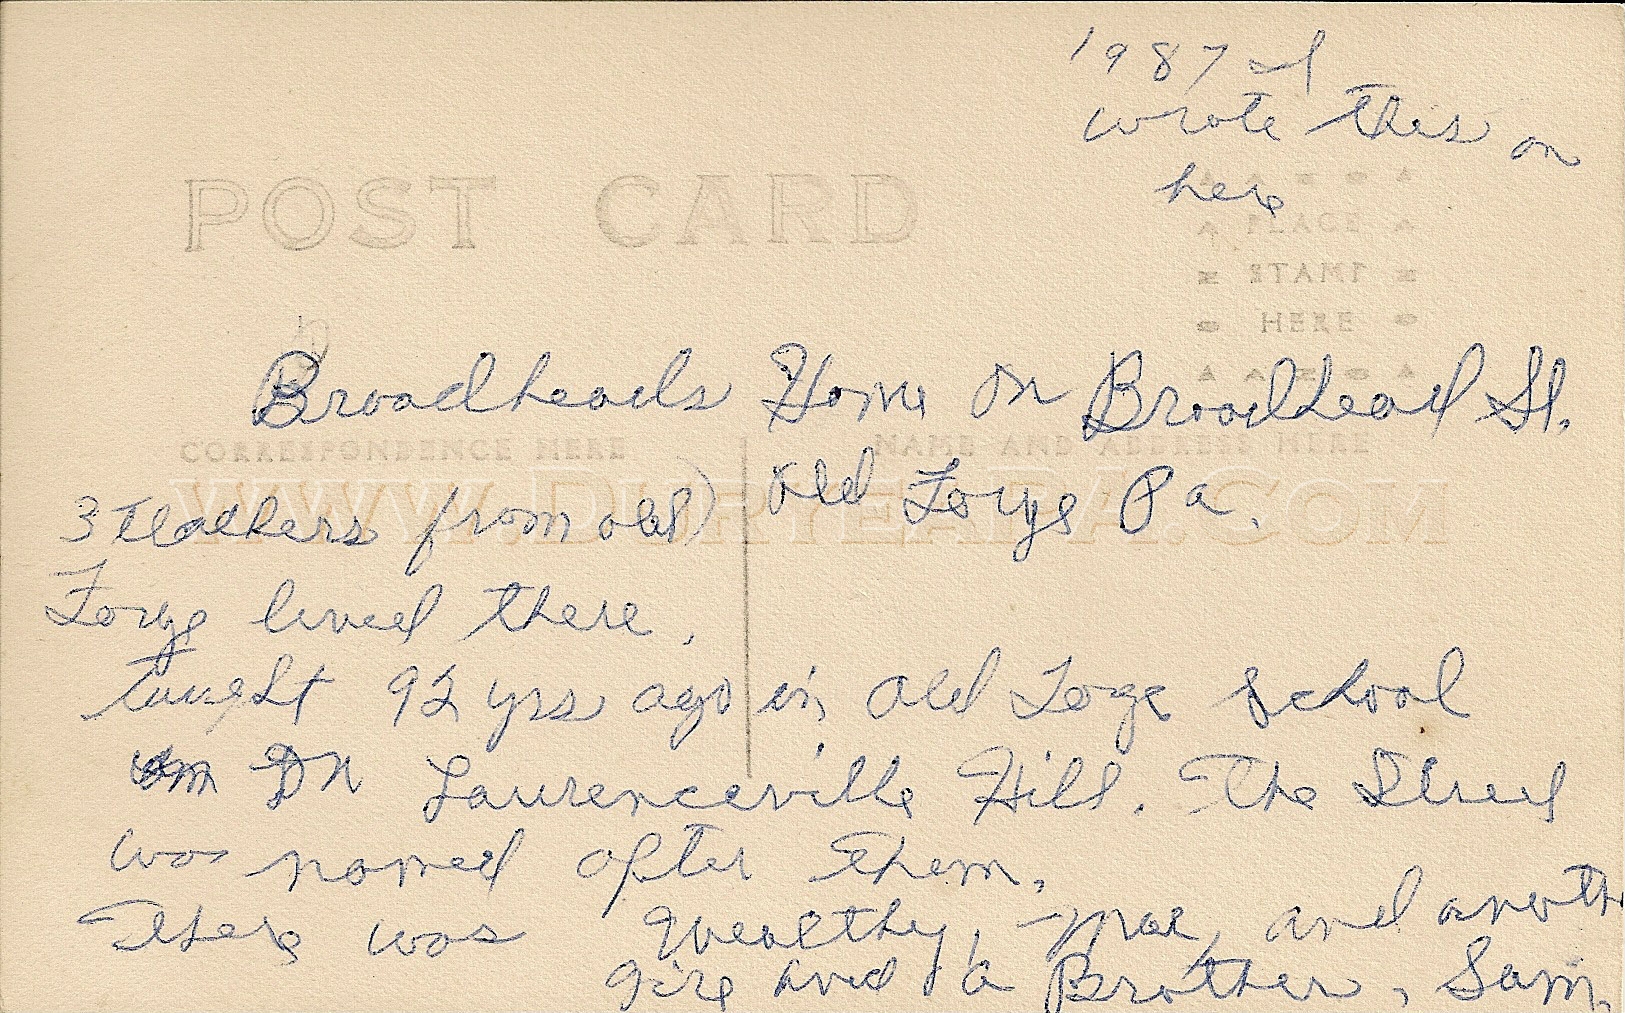 1987 I
wrote this on
here
POST CARD
PLACE
STAMP
HERE
Broadheads Home on Broadhead St.
CORRESPONDENCE HERE
NAME AND ADDRESS HERE
Old Forge Pa.
WWW.DURYEAPA.COM
3 Teachers from old)
Forge lived there.
taught 92 yrs ago in Old Forge School
On Laurenceville Hill. The Street
was named after them.
There was Wealthy, Mae, and anoth
girl and a Brother, Sam.